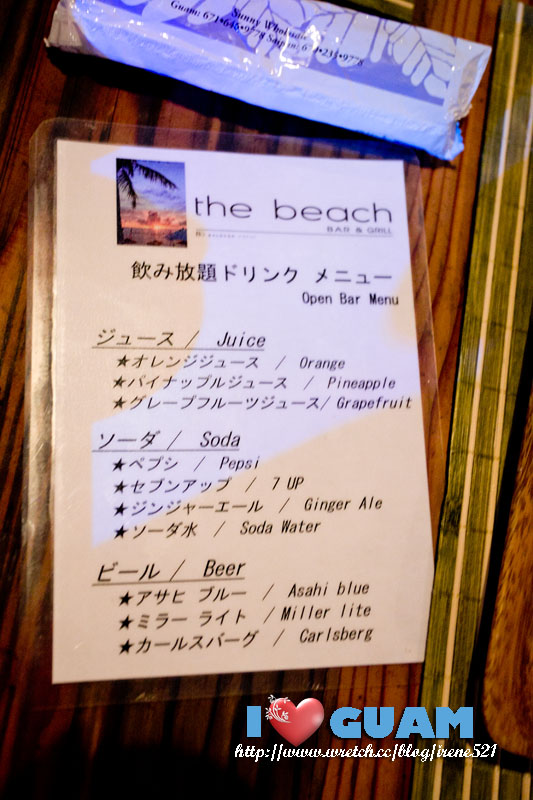 Sunny Wholesale
Guam: 671•645•9778 Saipan: 670•234•9778
the beach
BAR & GRILL
飲み放題ドリンク メニュー
Open Bar Menu
ジュース / Juice
★オレンジジュース / Orange
★パイナップルジュース / Pineapple
★グレープフルーツジュース/ Grapefruit
ソーダ / Soda
★ペプシ / Pepsi
★セブンアップ / 7 UP
★ジンジャーエール / Ginger Ale
★ソーダ水 / Soda Water
ビール / Beer
★アサヒ ブルー / Asahi blue
★ミラー ライト / Miller lite
★カールスバーグ / Carlsberg
I GUAM
http://www.wretch.cc/blog/irene521